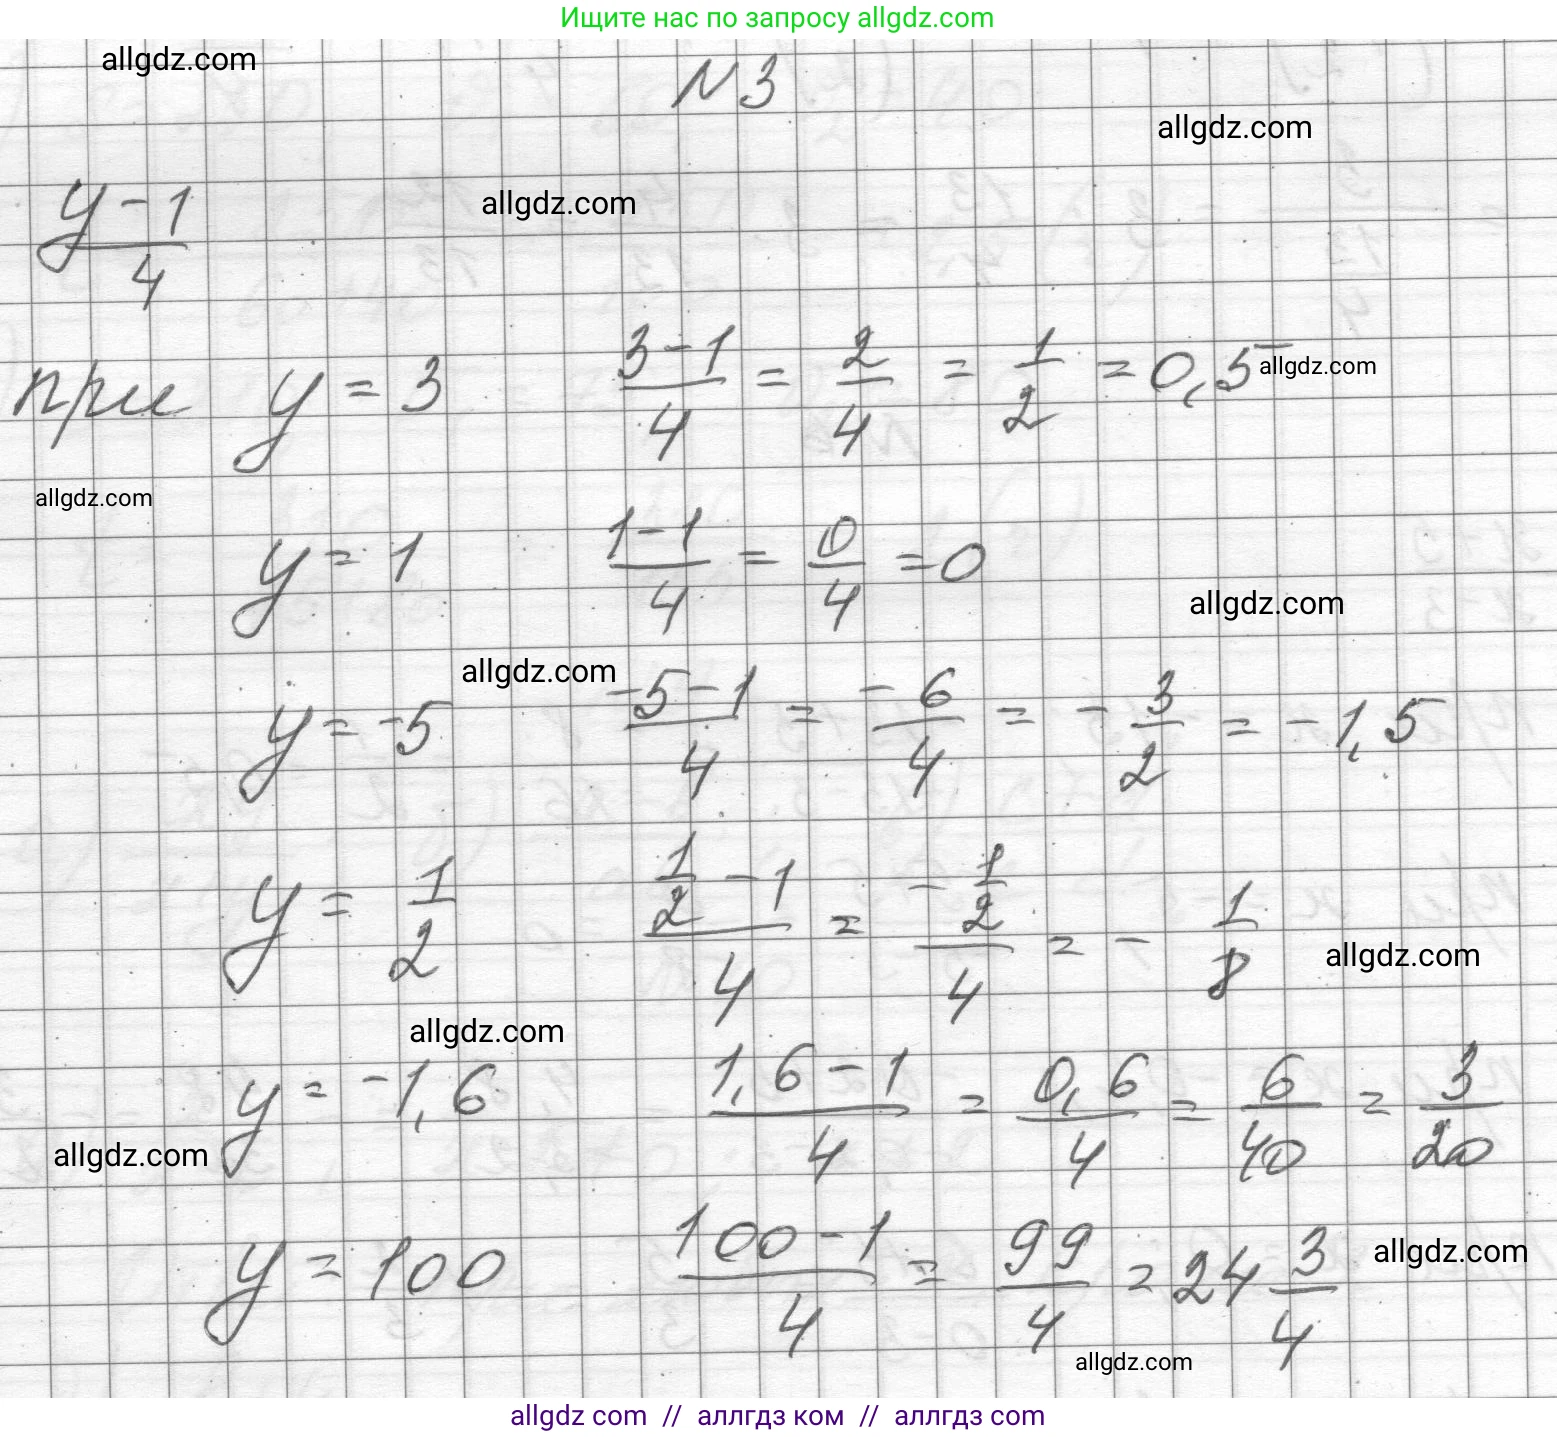 Ищите нас по запросу allgdz.com
allgdz.com
N 3
allgdz.com
(y - 1)/4
allgdz.com
при y = 3 (3 - 1)/4 = 2/4 = 1/2 = 0,5
allgdz.com
allgdz.com
y = 1 (1 - 1)/4 = 0/4 = 0
allgdz.com
allgdz.com
y = -5 (-5 - 1)/4 = -6/4 = -3/2 = -1,5
y = 1/2 (1/2 - 1)/4 = (-1/2)/4 = -1/8
allgdz.com
allgdz.com
y = -1,6 (1,6 - 1)/4 = 0,6/4 = 6/40 = 3/20
allgdz.com
y = 100 (100 - 1)/4 = 99/4 = 24 3/4
allgdz.com
allgdz.com
allgdz com // аллгдз ком // аллгдз com